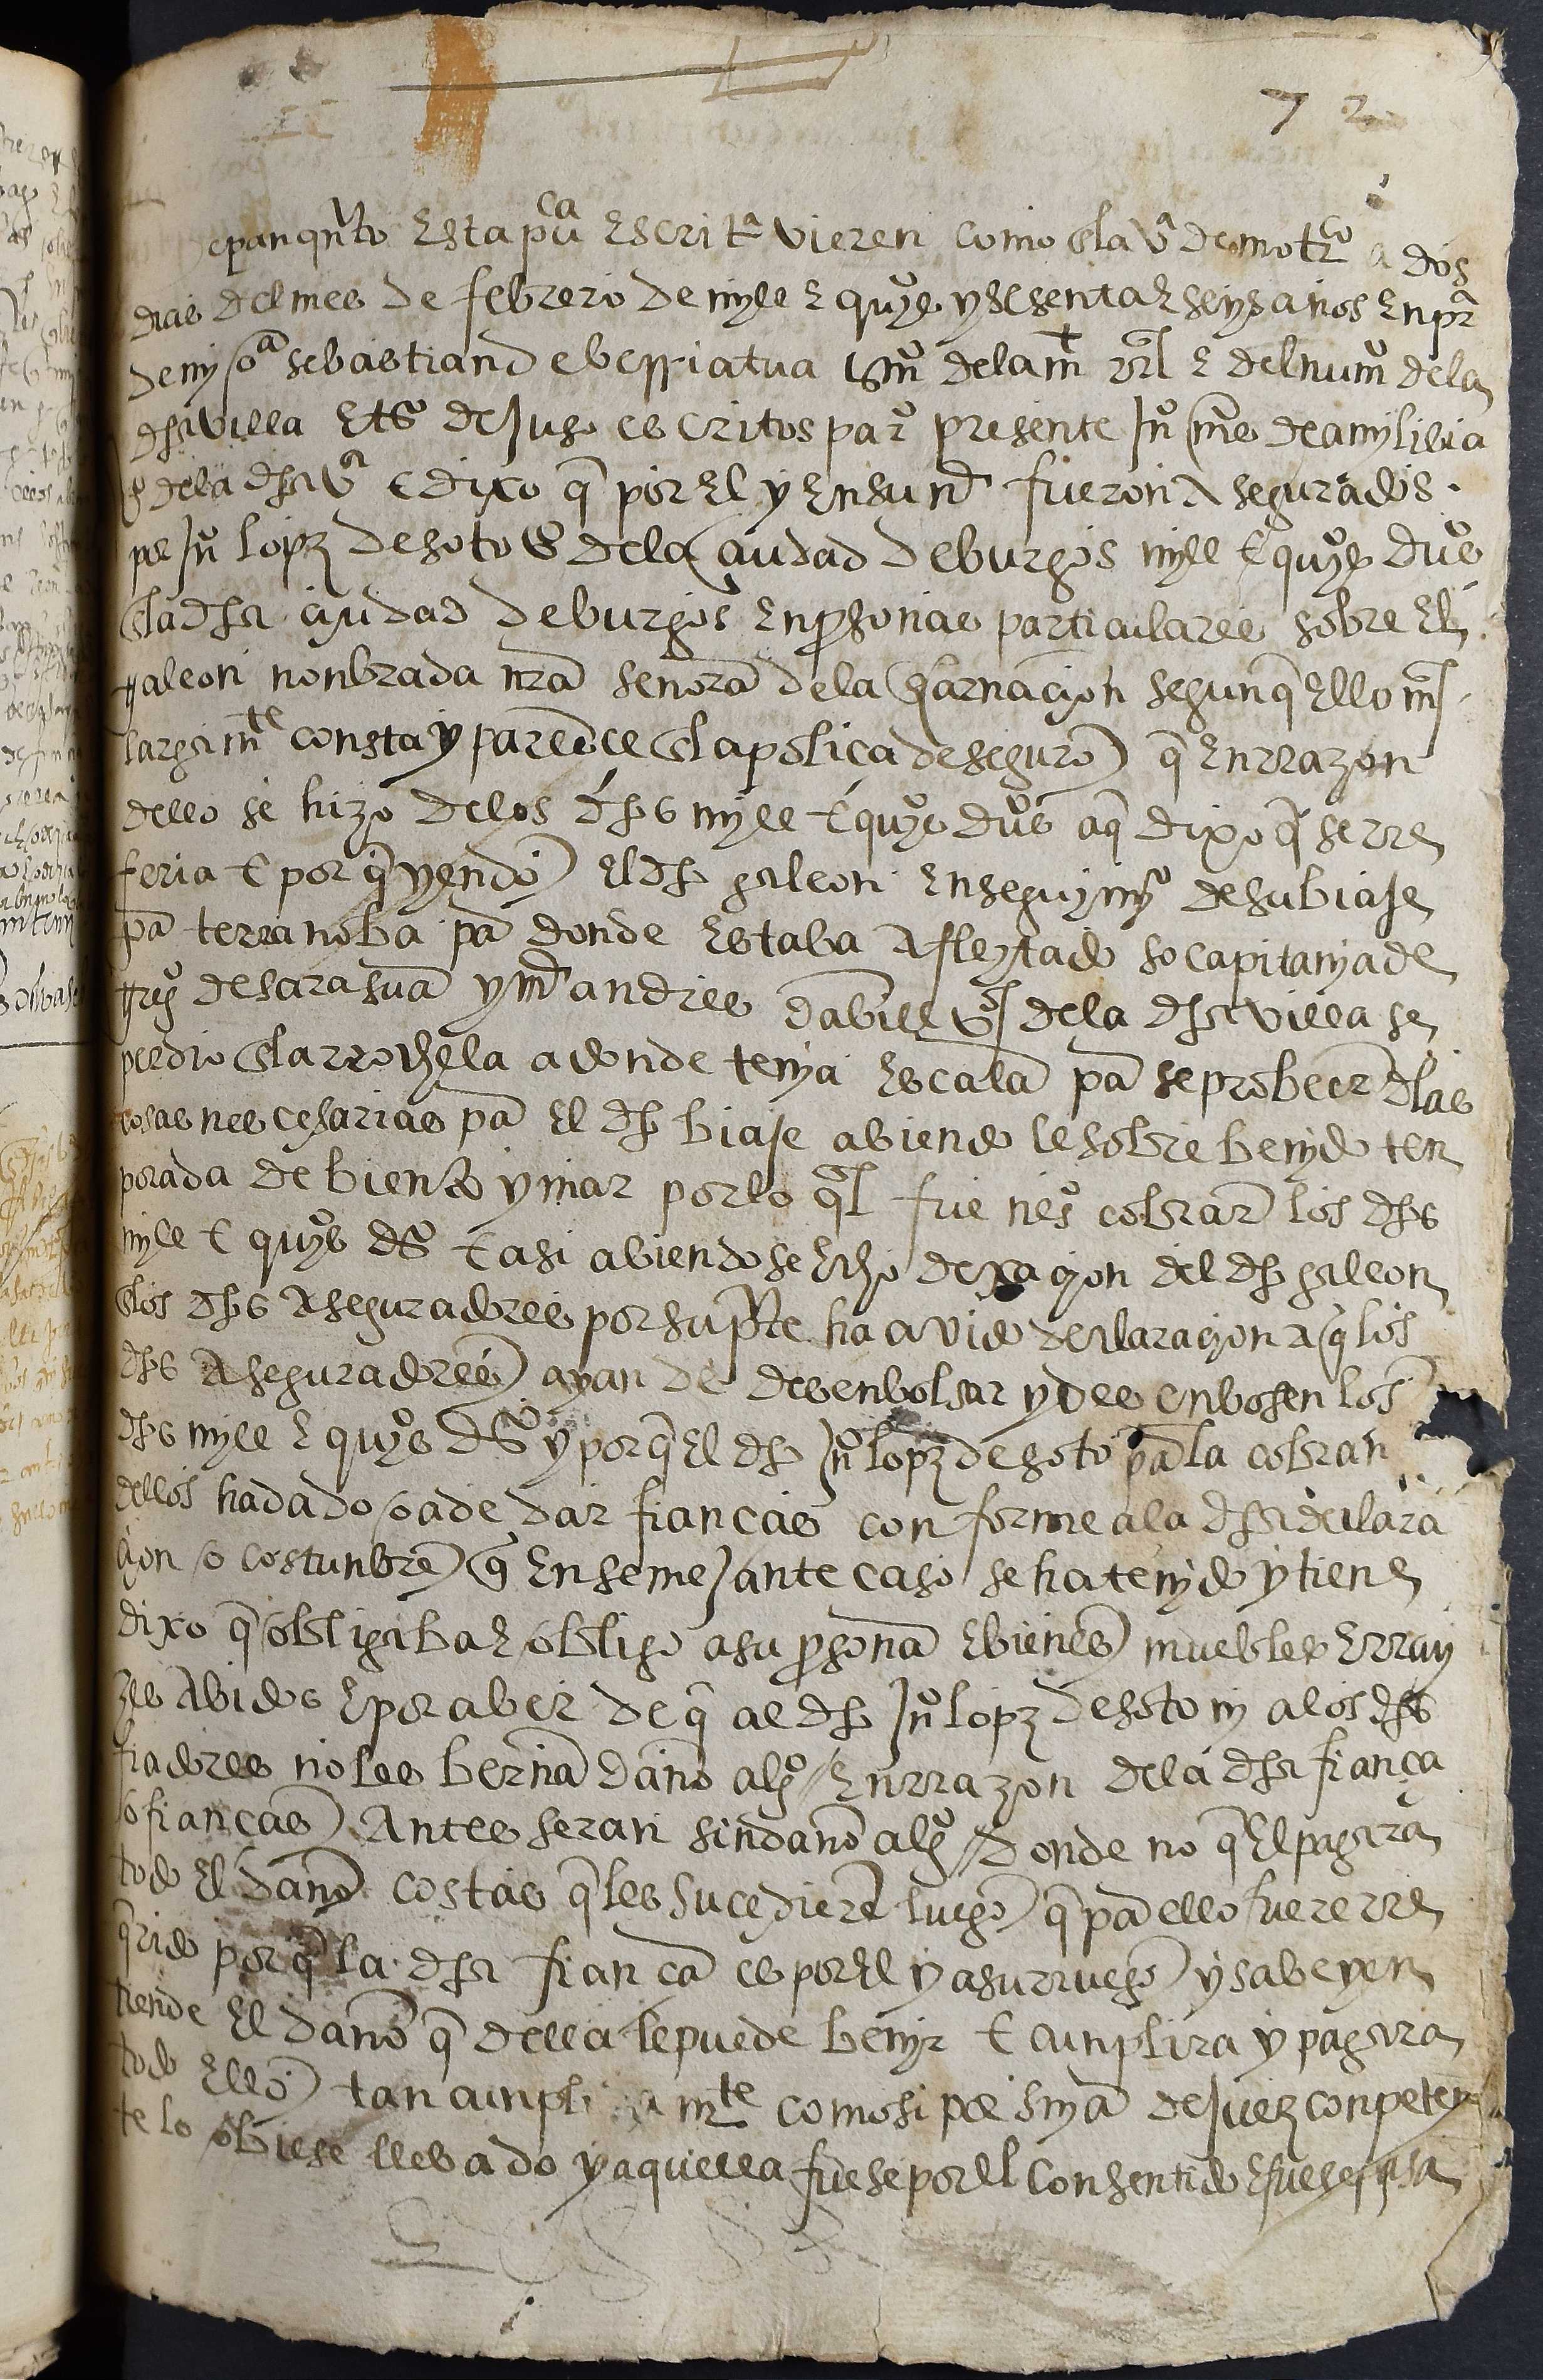 72
Sepan qnto Esta puca Escritª vieren como En la vª de motrco a dos
dias del mes de febrero de myll E quyos y sesenta E seys años En prª
de my soª sebastian de berriatua esno dela mt rrl E del numo dela
dha villa E tso de Juso escritos paro presente Juo mns de amylibia
vº dela dha vª E dixo q por El y En su ne fueron Asegurados
por Juo lopz de soto vº dela ciudad de burgos myll E quyos dus
En la dha ciudad de burgos En personas particulares sobre El
galeon nonbrada nra señora dela Encarnacion segun q Ello mas
largamte consta y paresce En la poliça de seguro q En rrazon
dello se hizo delos dhos myll E quyos dus a q dixo q se rre
feria E por q yendo El dho galeon En seguymyº de su biaje
pa terranoba pa donde Estaba Afleytado so capitanya de
 de sarasua y md andres dabiell vos dela dha villa se
perdio En la rrochela adonde tenya Escala pa se probeer de las
cosas nescesarias pa El dho biaje abiendo le sobrebenydo ten
porada de biento y mar por lo ql fue neso cobrar los dhos
myll E quyos dus E asi abiendose Echo dexacion del dho galeon
En los dhos Aseguradores por su pte ha avido declaracion a q los
dhos Aseguradores ayan de desenbolsar y desenbosen los
dhos myll E quyos dus y por q El dho Juo lopz de soto pa la cobran
dellos ha dado o a de dar fianças conforme a la dha declara
cion o costunbre q En semejante caso se ha tenydo y tiene
dixo q obligaba E obligo a su persona E bienes muebles E rray
zes Abidos E por aber de q al dho Juo lopz de soto ny a los dhos
fiadores no les berna daño algo En rrazon dela dha fiança
o fianças Antes seran sin daño algo donde no q El pagara
todo El daño costas q les sucediere luego q pa ello fuere rre
qrido por q la dha fiança es por El y a su rruego y sabe y en
tiende El daño q della le puede benyr E cunplira y pagara
todo Ello tan cunplimte como si por snya de Juez conpeten
te lo obiese llebado y aquella fuese por El consentido E fuese pasa